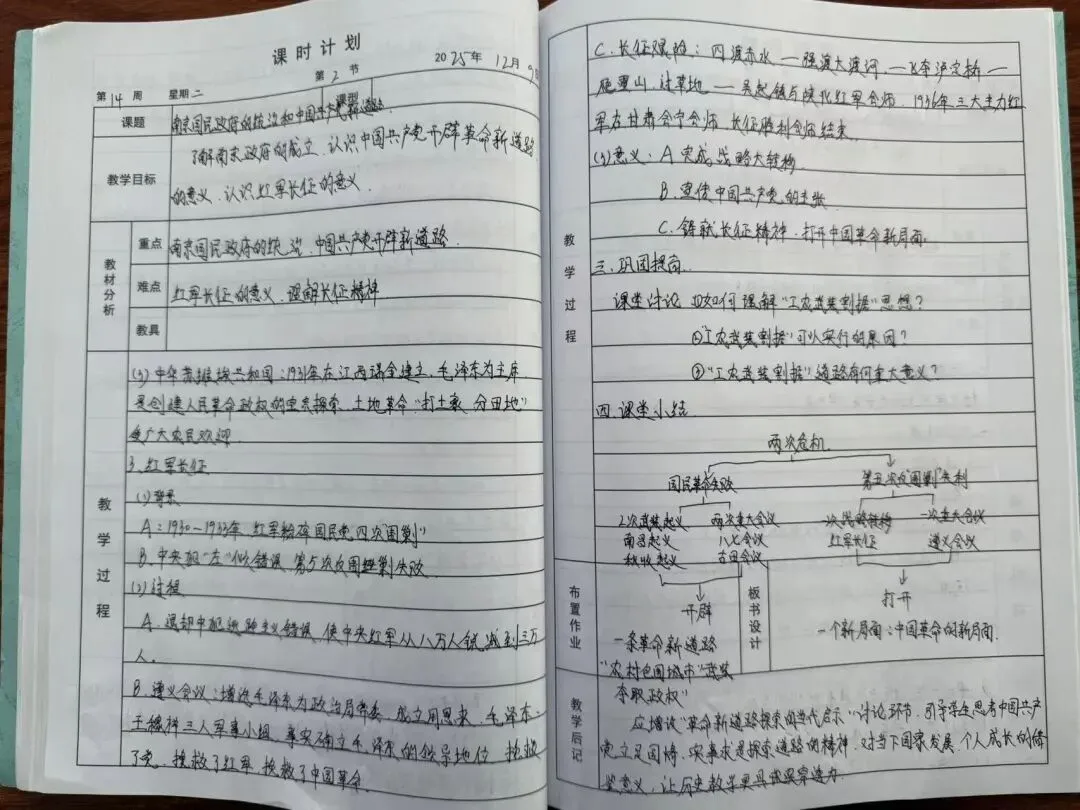 课时计划
第2节 2025年12月9日
第14周 星期二
课题 南京国民政府的统治和中国共产党 新道路 课型
教学目标 了解南京政府的成立、认识中国共产党开辟革命新道路
的意义、认识红军长征的意义.
教材分析
重点 南京国民政府的统治、中国共产党开辟新道路.
难点 红军长征的意义、理解长征精神
教具
教学过程
(3) 中华苏维埃共和国:1931年在江西瑞金建立,毛泽东为主席
是创建人民革命政权的宝贵探索、土地革命"打土豪、分田地"
受广大农民欢迎.
3、红军长征
(1)背景
A:1930-1933年、红军粉碎国民党四次"围剿"
B.中央犯"左"倾错误、第5次反围剿失败.
(2)过程
A、退却中犯逃跑主义错误,使中央红军从八万人锐减到三万
人.
B.遵义会议:增选毛泽东为政治局常委.成立周恩来、毛泽东、
王稼祥三人军事小组.事实确立毛泽东的领导地位,挽救
了党、挽救了红军,挽救了中国革命.
C.长征艰险:四渡赤水—强渡大渡河—飞夺泸定桥—
爬雪山、过草地—吴起镇与陕北红军会师.1936年三大主力红
军在甘肃会宁会师.长征胜利会师结束.
(3)意义:A 实成战略大转移
B.宣传中国共产党的主张
C.铸就长征精神.打开中国革命新局面.
教学过程
三.巩固提高.
课堂讨论 ①如何理解"工农武装割据"思想?
②"工农武装割据"可以实行的原因?
③"工农武装割据"道路有何重大意义?
四.课堂小结
两次危机
国民革命失败 第五次反"围剿"失利
2次武装起义 两次重大会议 一次战略转移 一次重大会议
南昌起义 八七会议 红军长征 遵义会议
秋收起义 古田会议
布置作业 开辟 板书设计 打开
一条革命新道路 一个新局面:中国革命的新局面.
"农村包围城市"武装
夺取政权"
教学后记
应增设"革命新道路探索的当代启示"讨论环节.引导学生思考中国共产
党立足国情、实事求是探索道路的精神.对当下国家发展、个人成长的借
鉴意义,让历史教学更具现实穿透力.